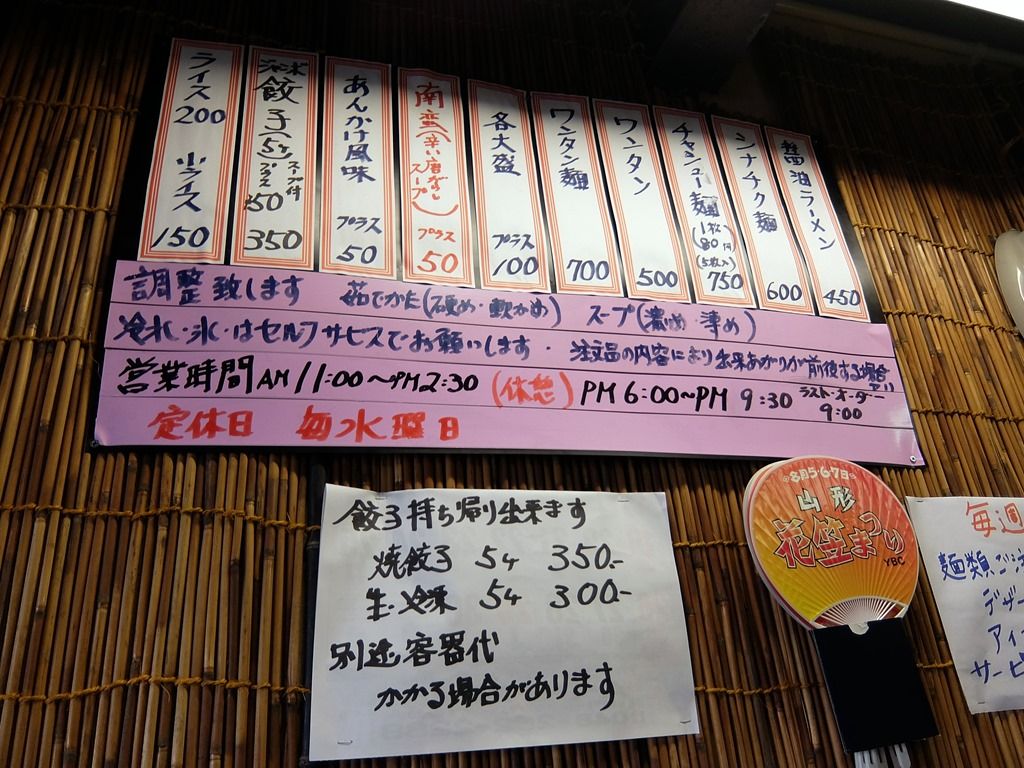 醤油ラーメン 450
シナチク麺 600
チャーシュー麺 1枚(80円)(5枚入) 750
ワンタン 500
ワンタン麺 700
各大盛 プラス 100
南蛮(辛い唐なしスープ) プラス 50
あんかけ風味 プラス 50
餃子(5ヶ) スープ付 プラス 50 350
ライス 200 小ライス 150
調整致します 茹でかた(硬め・軟かめ) スープ(濃いめ・薄め)
冷水・氷・はセルフサービスでお願いします・注文品の内容により出来あがりが前後する場合あり
営業時間 AM 11:00〜PM2:30 (休憩) PM 6:00〜PM 9:30 ラスト・オーダー 9:00
定休日 毎水曜日
餃子持ち帰り出来ます
焼餃子 5ヶ 350.-
生・冷凍 5ヶ 300.-
別途容器代
かかる場合があります
8月5・6・7日
山形
花笠まつり
YBC
毎週
麺類ご注
デザー
アイ
サービ